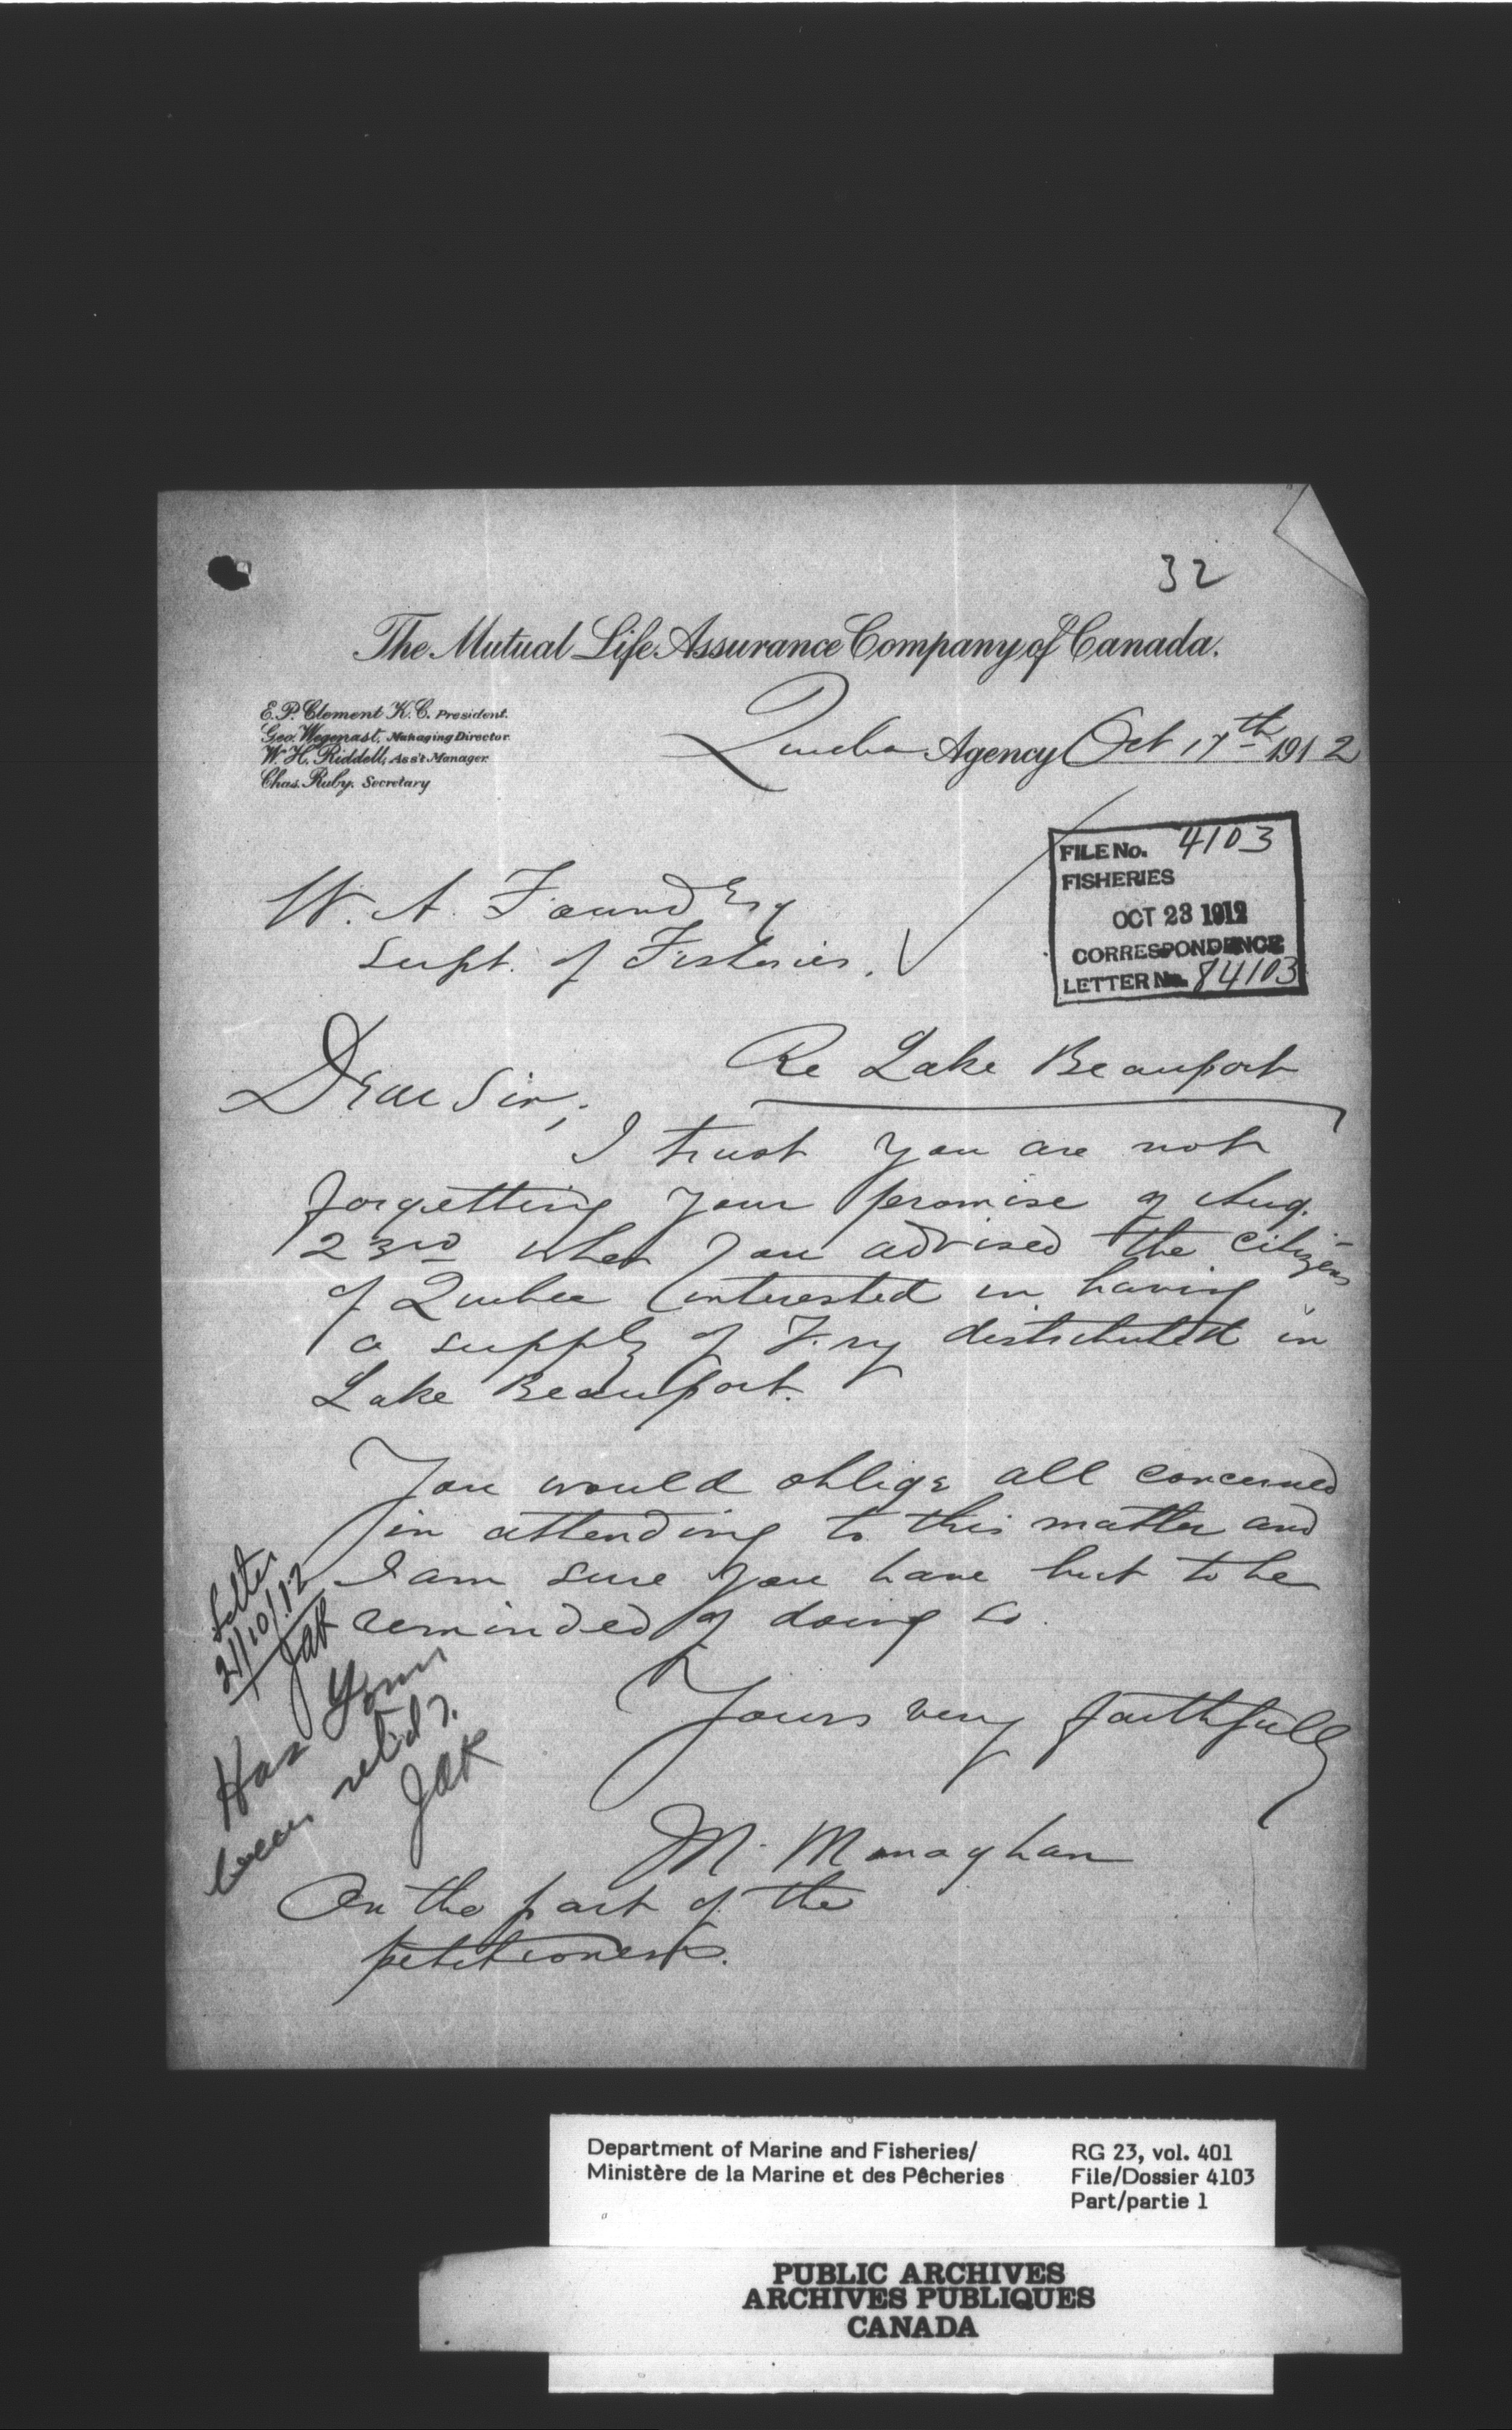 32
The Mutual Life Assurance Company of Canada.
E. P. Clement K. C. President.
Geo. Wegenast, Managing Director
W. H. Riddell, Ass't Manager.
Chas. Ruby. Secretary
Quebec Agency Oct 17th 1912
FILE No. 4103
FISHERIES
OCT 23 1912
CORRESPONDENCE
LETTER No. 84103
W. A. Found Esq
Supt. of Fisheries.
Re Lake Beauport
Dear Sir,
I trust you are not
forgetting your promise of Aug.
23rd when you advised the citizens
of Quebec interested in having
a supply of Fry distributed in
Lake Beauport.
You would oblige all concerned
in attending to this matter and
I am sure you have but to be
reminded of doing so.
Yours very faithfully
M. Monaghan
On the part of the
petitioners.
Letter
21/10/12
JAR
Has
been
JAR
Department of Marine and Fisheries/
Ministère de la Marine et des Pêcheries
RG 23, vol. 401
File/Dossier 4103
Part/partie 1
PUBLIC ARCHIVES
ARCHIVES PUBLIQUES
CANADA